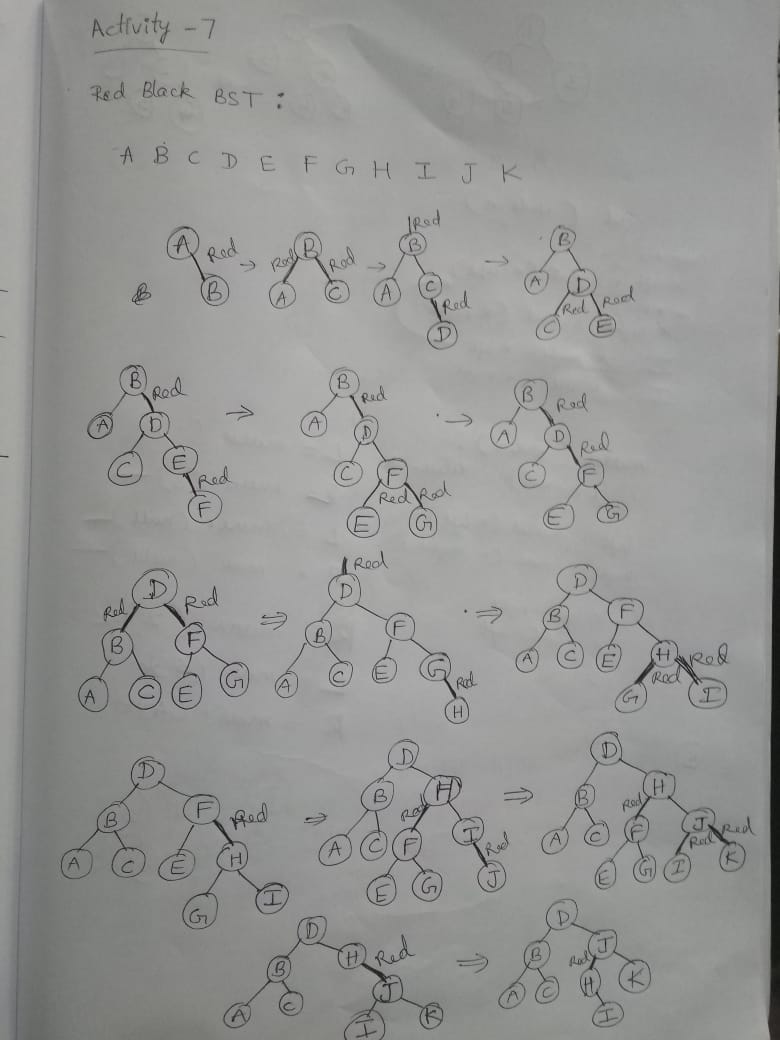 Activity - 7
Red Black BST :
A B C D E F G H I J K
A Red B
Red B Red A C
Red B A C Red D
B A D Red Red C E
B Red A D C E Red F
B Red A D C F Red Red E G
B Red A D Red C F E G
D Red Red B F A C E G
Red D B F A C E G Red H
D B F A C E H Red Red G I
D B F Red A C E H G I
D B H Red A C F I Red E G J
D B H Red A C F J Red Red E G I K
D B H Red A C J I K
D B J Red A C H K I